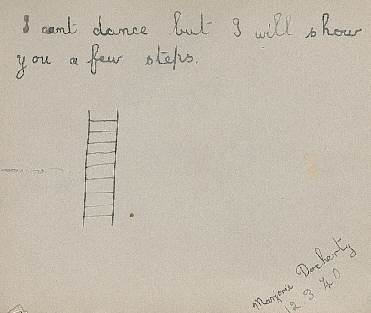 I cant dance but I will show
you a few steps.
Marjorie Docherty
12 3 40